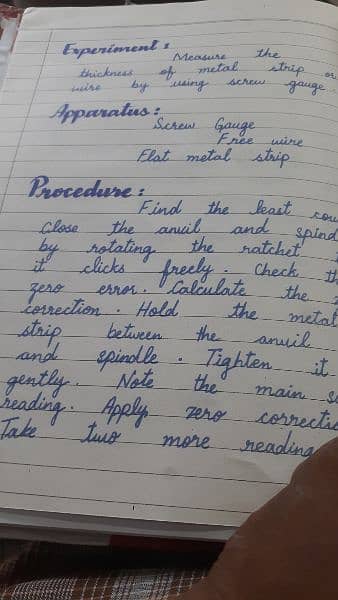 Experiment :
Measure the
thickness of metal strip or
wire by using screw gauge.
Apparatus :
Screw Gauge
Free wire
Flat metal strip
Procedure :
Find the least
Close the anvil and
by rotating the ratchet
it clicks freely. Check
zero error. Calculate the
correction. Hold the metal
strip between the anvil
and spindle. Tighten it
gently. Note the main
reading. Apply zero
Take two more